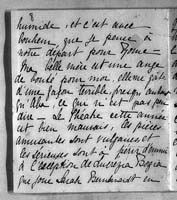 humide, et c'est avec
bonheur que je pense à
notre départ pour Rome —
Ma belle mère est une ange
de bonté pour moi, elle me gâte
d'une façon terrible presque autant
qu'Ada, ce qui n'est pas peu
dire — Le théâtre cette année
est bien mauvais, les pièces
amusantes sont vulgaires et
les sérieuses sont à pleurer d'ennui
à l'exception de Lucrezia Borgia
que joue Sarah Bernhardt en